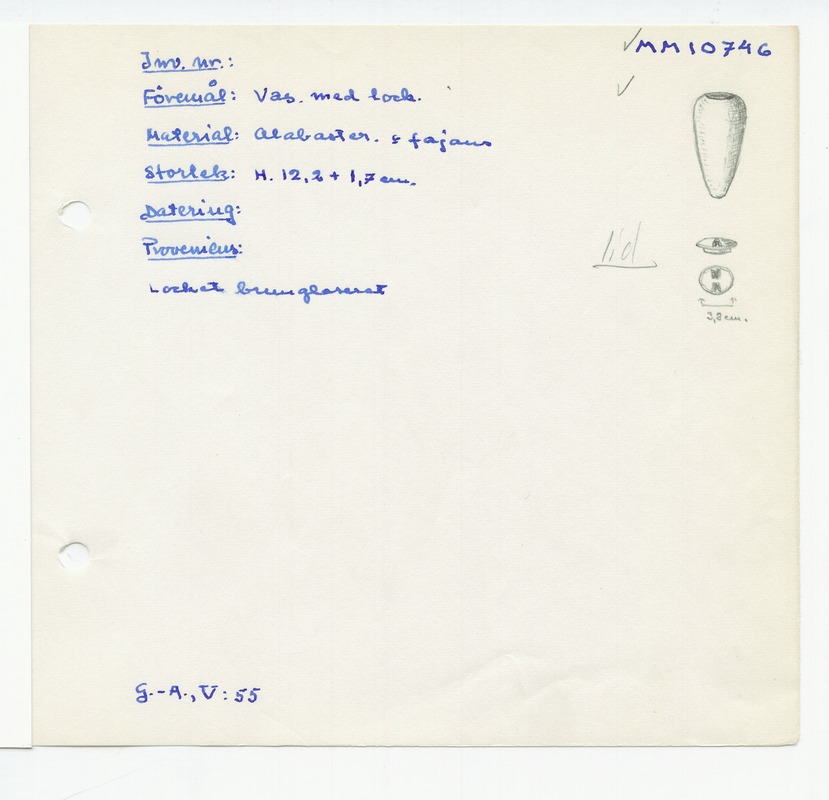 MM10746
Inv. nr.:
Föremål: Vas. med lock.
Material: Alabaster. & fajans
Storlek: H. 12,2 + 1,7 cm.
Datering:
Proveniens:
lid
Locket brunglaserat
3,8 cm.
G.-A., V: 55